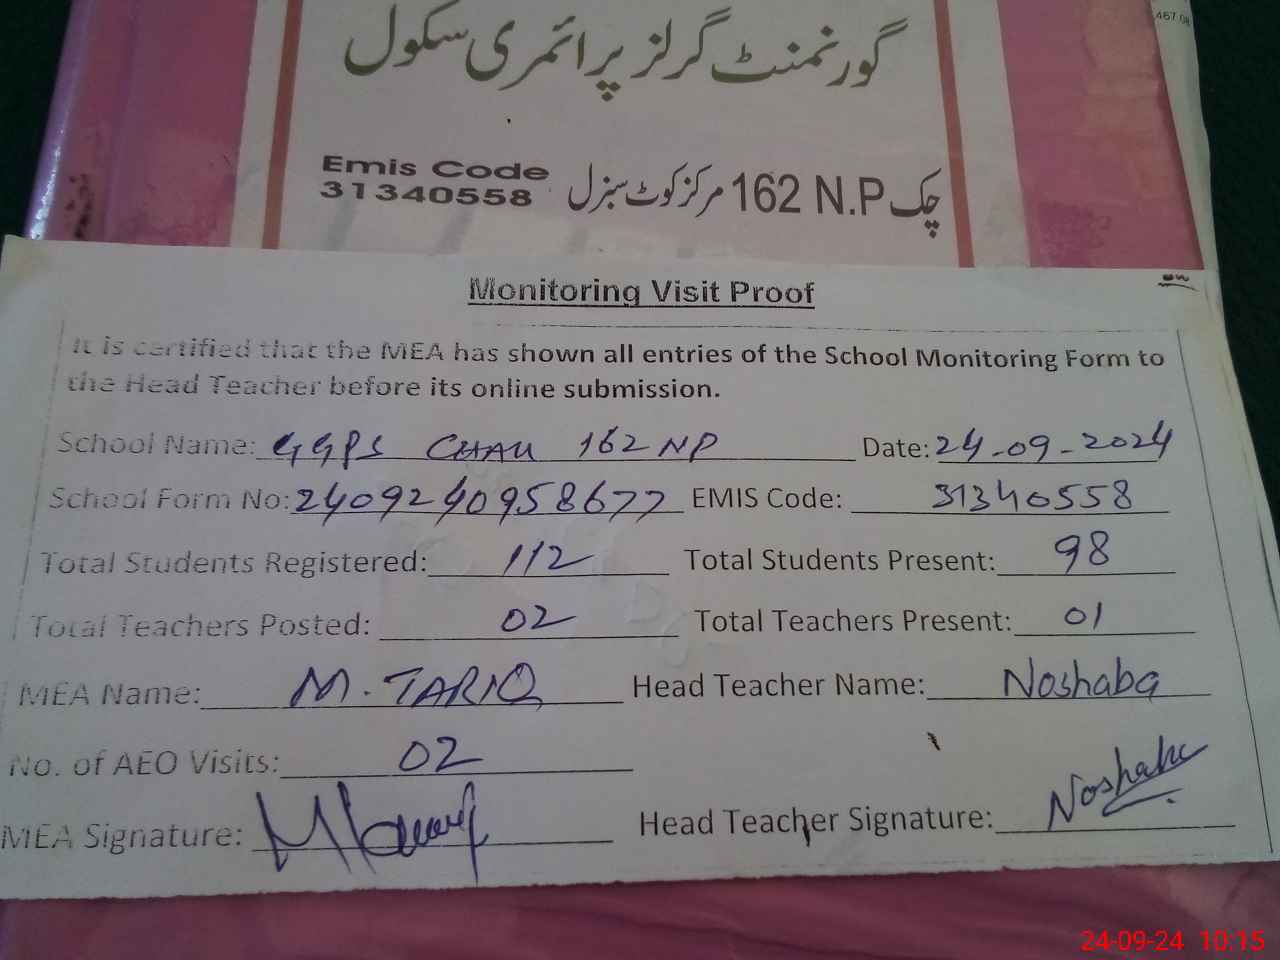 گورنمنٹ گرلز پرائمری سکول
467 08
Emis Code
31340558
چک 162 N.P مرکز کوٹ سبزل
Monitoring Visit Proof
It is certified that the MEA has shown all entries of the School Monitoring Form to
the Head Teacher before its online submission.
School Name: GGPS CHAK 162 NP Date: 24-09-2024
School Form No: 2409240958677 EMIS Code: 31340558
Total Students Registered: 112 Total Students Present: 98
Total Teachers Posted: 02 Total Teachers Present: 01
MEA Name: M. TARIQ Head Teacher Name: Noshaba
No. of AEO Visits: 02
MEA Signature: Head Teacher Signature: Noshaba
24-09-24 10:15